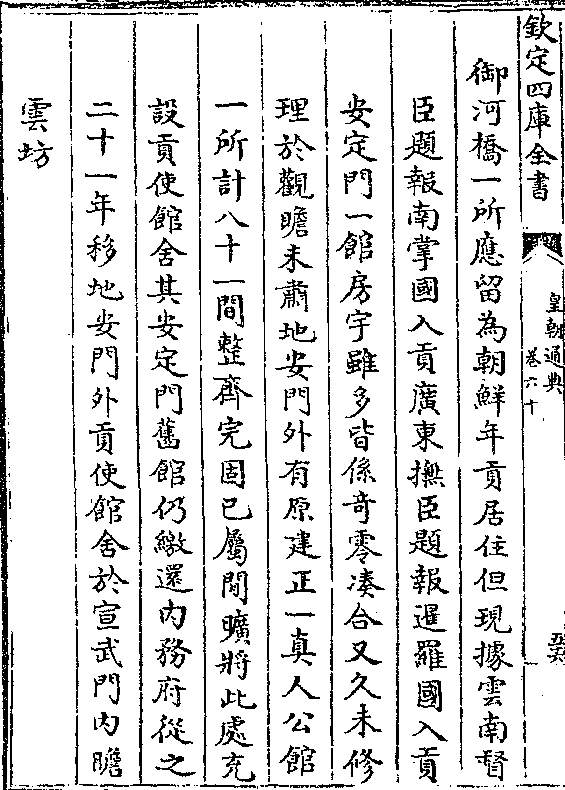 欽定四庫全書
皇朝通典
卷六十
御河橋一所應留為朝鮮年貢居住但現據雲南督
臣題報南掌國入貢廣東撫臣題報暹羅國入貢
安定門一館房宇雖多皆係竒零凑合又久未修
理於觀瞻未肅地安門外有原建正一真人公館
一所計八十一間整齊完固已屬閒曠將此處充
設貢使館舍其安定門舊館仍繳還内務府從之
二十一年移地安門外貢使館舍於宣武門内瞻
雲坊